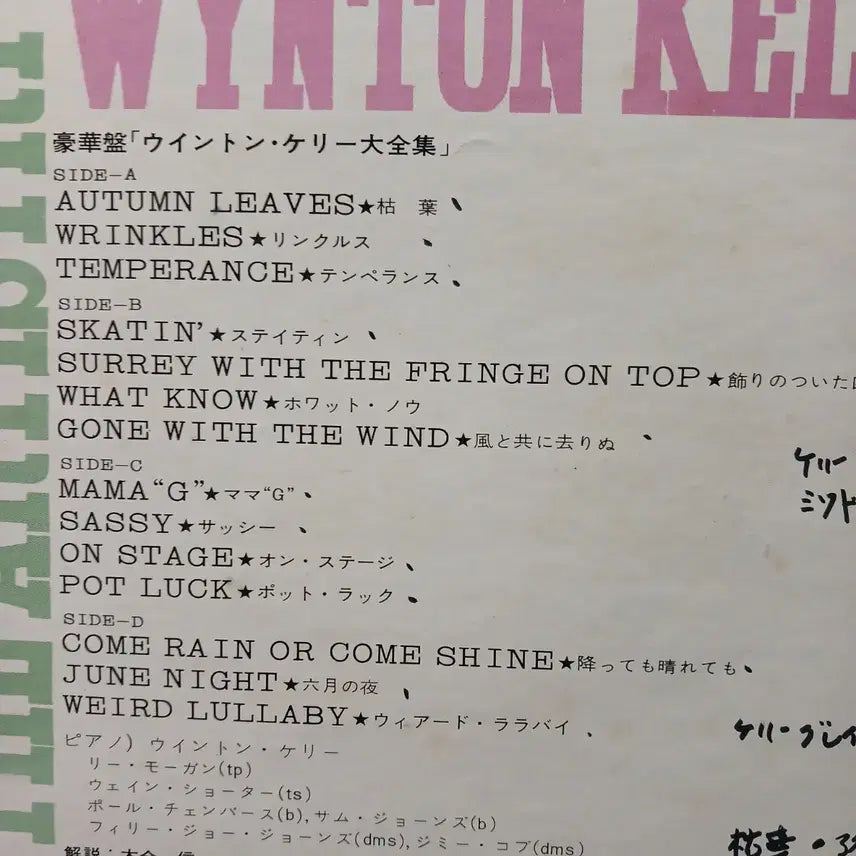 WYNTON KEL
豪華盤「ウイントン・ケリー大全集」
SIDE-A
AUTUMN LEAVES★枯 葉
WRINKLES★リンクルス
TEMPERANCE★テンペランス
SIDE-B
SKATIN'★ステイティン
SURREY WITH THE FRINGE ON TOP★飾りのついた
WHAT KNOW★ホワット・ノウ
GONE WITH THE WIND★風と共に去りぬ
SIDE-C
MAMA“G”★ママ“G”
SASSY★サッシー
ON STAGE★オン・ステージ
POT LUCK★ポット・ラック
SIDE-D
COME RAIN OR COME SHINE★降っても晴れても
JUNE NIGHT★六月の夜
WEIRD LULLABY★ウィアード・ララバイ
ピアノ) ウイントン・ケリー
リー・モーガン(tp)
ウェイン・ショーター(ts)
ポール・チェンバース(b), サム・ジョーンズ(b)
フィリー・ジョー・ジョーンズ(dms), ジミー・コブ(dms)
解説：
ケリー
ミッド
ケリー・グレイ
枯葉